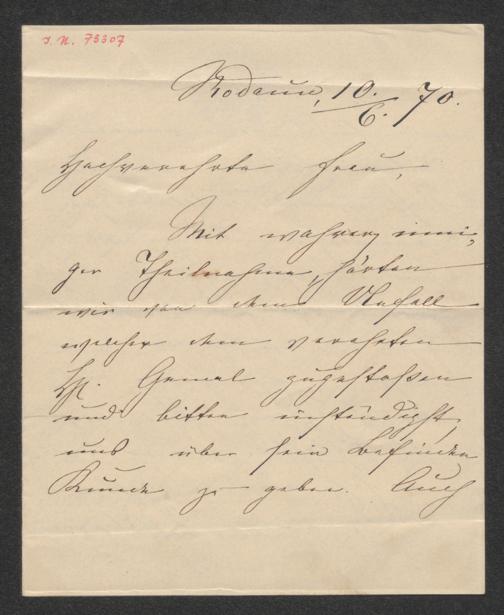 I. N. 73307
Rodaun, 10./6. 70.
Hochverehrte Frau,
Mit wahrer, inni-
ger Theilnahme, hörten
wir von dem Unfall
welcher dem verehrten
H. Gemal zugestoßen
und bitten inständigst,
uns über sein Befinden
Kunde zu geben. Auch